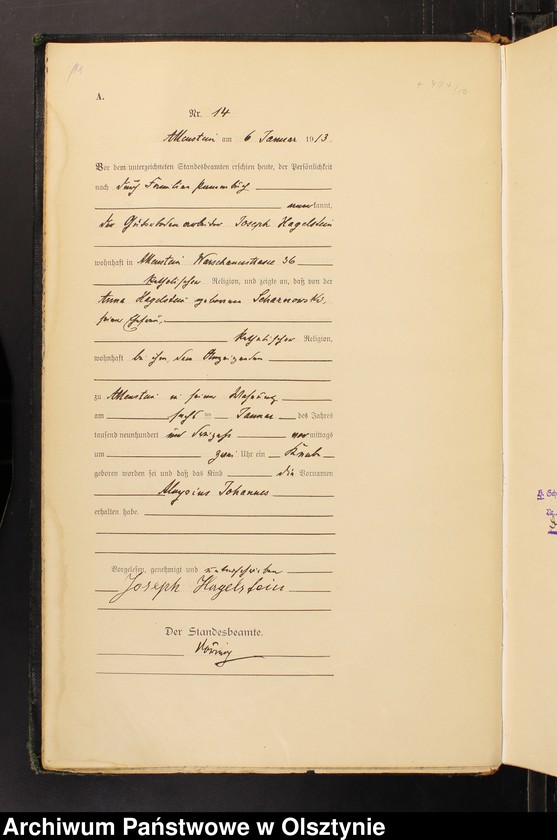 A.
Nr. 14
Allenstein am 6 Januar 1913.
Vor dem unterzeichneten Standesbeamten erschien heute, der Persönlichkeit
nach durch Familienstammbuch
anerkannt,
der Güterbodenarbeiter Joseph Hagelstein
wohnhaft in Allenstein Warschauerstrasse 36
katholischer Religion, und zeigte an, daß von der
Anna Hagelstein geborenen Scharnowski,
seiner Ehefrau,
katholischer Religion,
wohnhaft bei ihm, dem Anzeigenden
zu Allenstein in seiner Wohnung
am Januar des Jahres
tausend neunhundert und dreizehn vormittags
um zwei Uhr ein Knabe
geboren worden sei und daß das Kind die Vornamen
Aloysius Johannes
erhalten habe.
Vorgelesen, genehmigt und unterschrieben
Joseph Hagelstein
Der Standesbeamte.
Archiwum Państwowe w Olsztynie